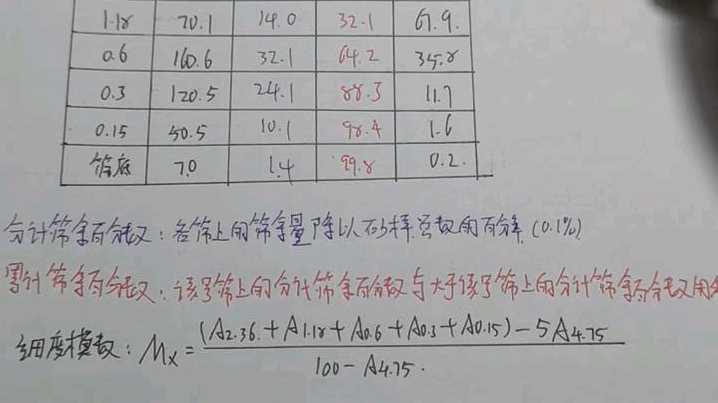 1.18 70.1 14.0 32.1 67.9.
0.6 160.6 32.1 64.2 35.8
0.3 120.5 24.1 88.3 11.7
0.15 50.5 10.1 98.4 1.6
筛底 7.0 1.4 99.8 0.2.
分计筛余百分数：各筛上的筛余量除以砂样总数的百分率 (0.1%)
累计筛余百分数：该号筛上的分计筛余百分数与大于该号筛上的分计筛余百分数的
细度模数：Mx = (A2.36.+A1.18+A0.6+A0.3+A0.15)-5A4.75
100-A4.75.